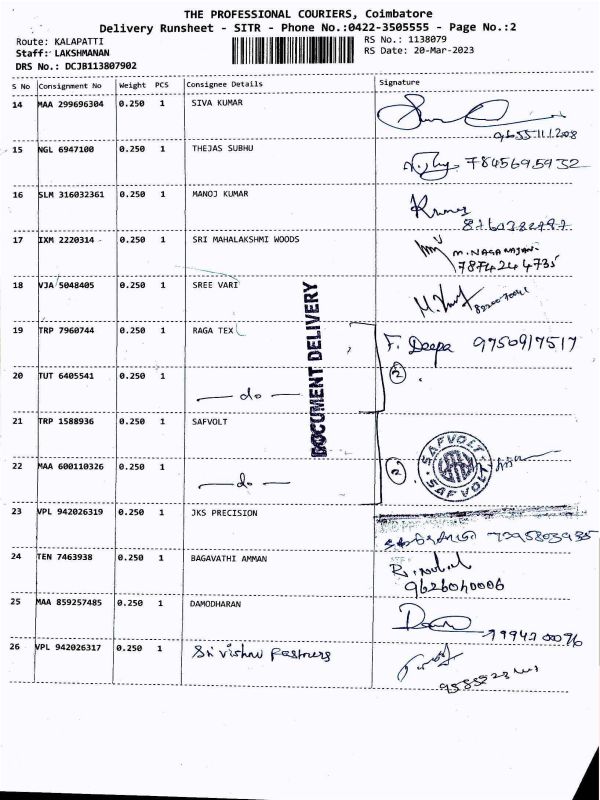 THE PROFESSIONAL COURIERS, Coimbatore
Delivery Runsheet - SITR - Phone No.:0422-3505555 - Page No.:2
Route: KALAPATTI RS No.: 1138079
Staff: LAKSHMANAN RS Date: 20-Mar-2023
DRS No.: DCJB113807902
S No Consignment No Weight PCS Consignee Details Signature
14 MAA 299696304 0.250 1 SIVA KUMAR
15 NGL 6947100 0.250 1 THEJAS SUBHU 7845695932
16 SLM 316032361 0.250 1 MANOJ KUMAR
17 IXM 2220314 0.250 1 SRI MAHALAKSHMI WOODS M.NAGARAJAN
7874244735
18 VJA 5048405 0.250 1 SREE VARI
DOCUMENT DELIVERY
19 TRP 7960744 0.250 1 RAGA TEX F. Deepa 9750917517
20 TUT 6405541 0.250 1 — do — 2
21 TRP 1588936 0.250 1 SAFVOLT SAFVOLT
22 MAA 600110326 0.250 1 — do — 2 SAFVOLT
23 VPL 942026319 0.250 1 JKS PRECISION 7395803935
24 TEN 7463938 0.250 1 BAGAVATHI AMMAN
9626040006
25 MAA 859257485 0.250 1 DAMODHARAN
26 VPL 942026317 0.250 1 Sri Vishnu Fastners